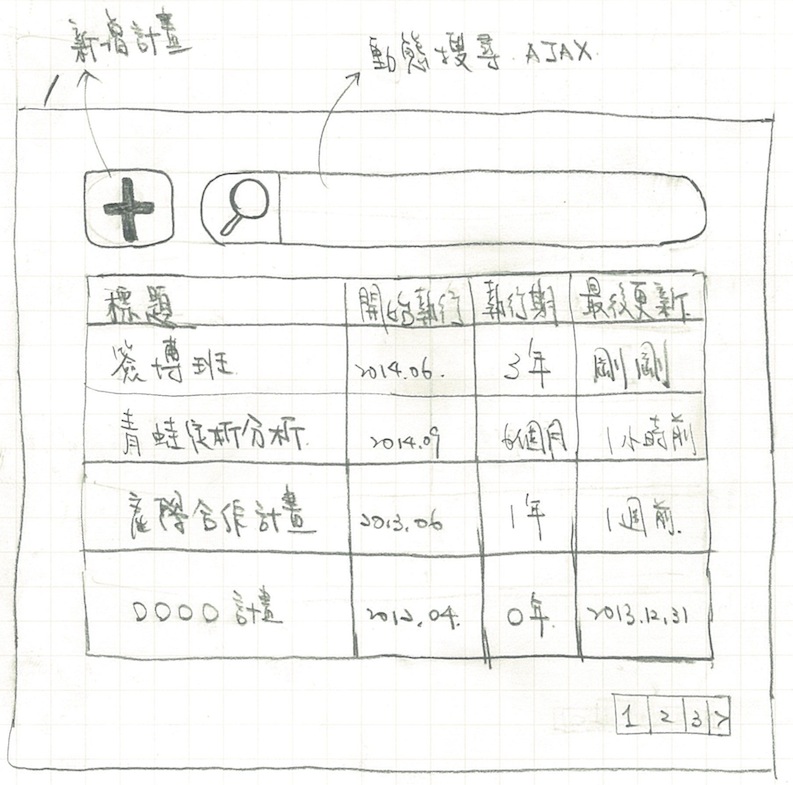 新增計畫
動態搜尋 AJAX
/
標題 開始執行 執行期 最後更新
簽博班 2014.06. 3年 剛剛
青蛙分析 2014.09 6個月 1小時前
產學合作計畫 2013.06 1年 1週前.
OOOO計畫 2012.04. 0年. 2013.12.31
1 2 3 >